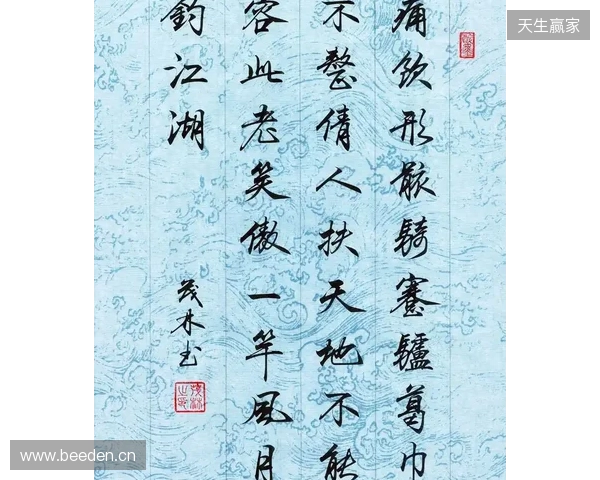 痛飲形骸騎蹇驢葛巾
不整倩人扶天地不能
容此老笑傲一竿風月
釣江湖
茂林书
天生赢家
www.beeden.cn